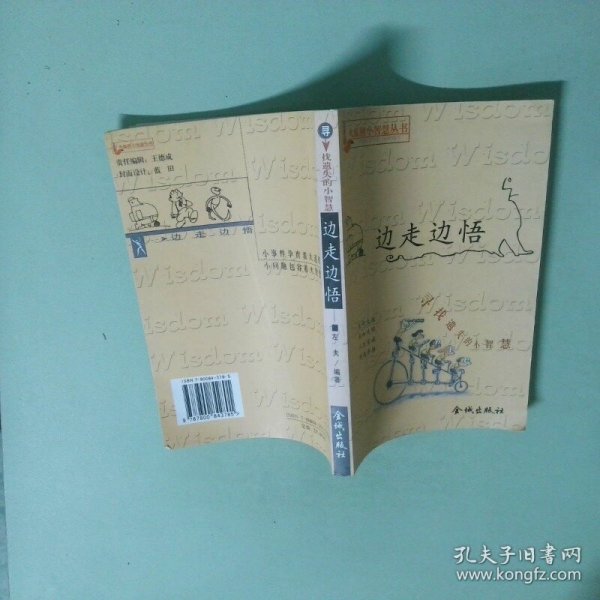 Wisdom
责任编辑：王德成
封面设计：蓝田
边走边悟
小事件孕育着大道
小问题包容着大
ISBN 7-80084-378-5
9 787800 843785
寻
找遗失的小智慧
边走边悟
左 夫/编著
金城出版社
小智慧丛书
边走边悟
寻找遗失的小智慧
金城出版社
Wisdom
孔夫子旧书网
www.kongfz.com